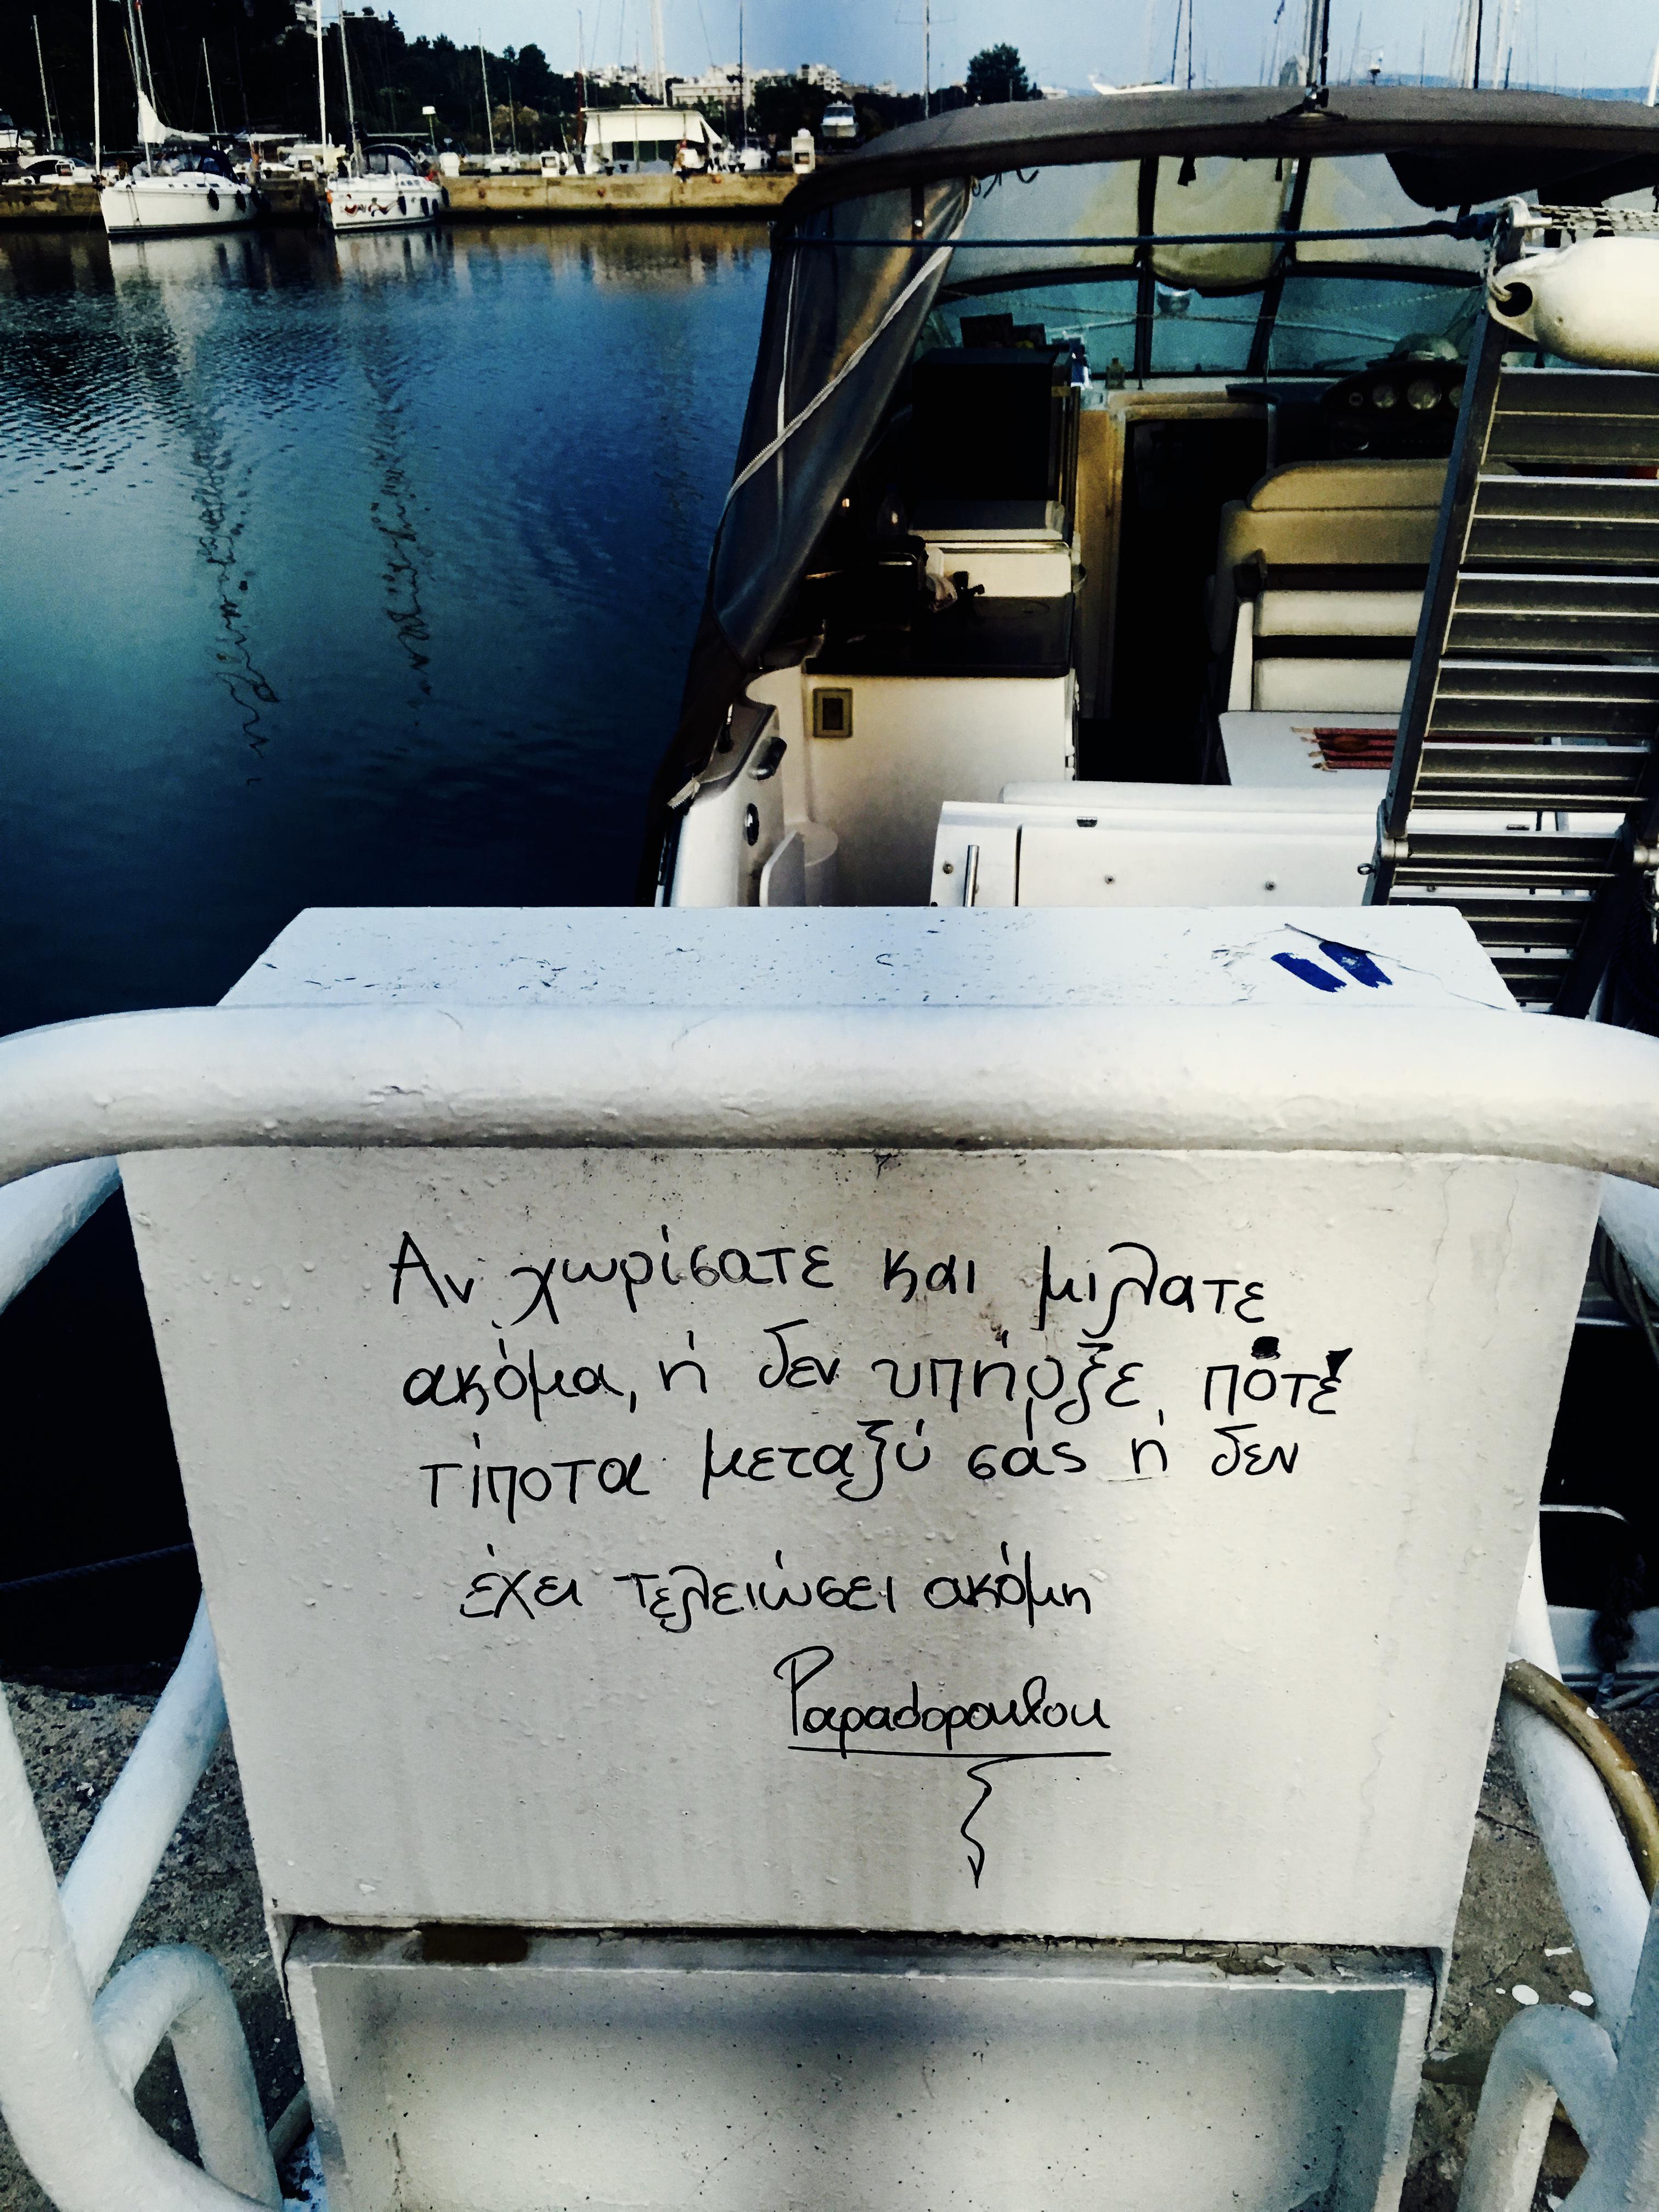 Αν χωρίσατε και μιλατε
ακόμα, ή δεν υπήρξε ποτέ
τίποτα μεταξύ σάς ή δεν
έχει τελειώσει ακόμη
Papadopoulou